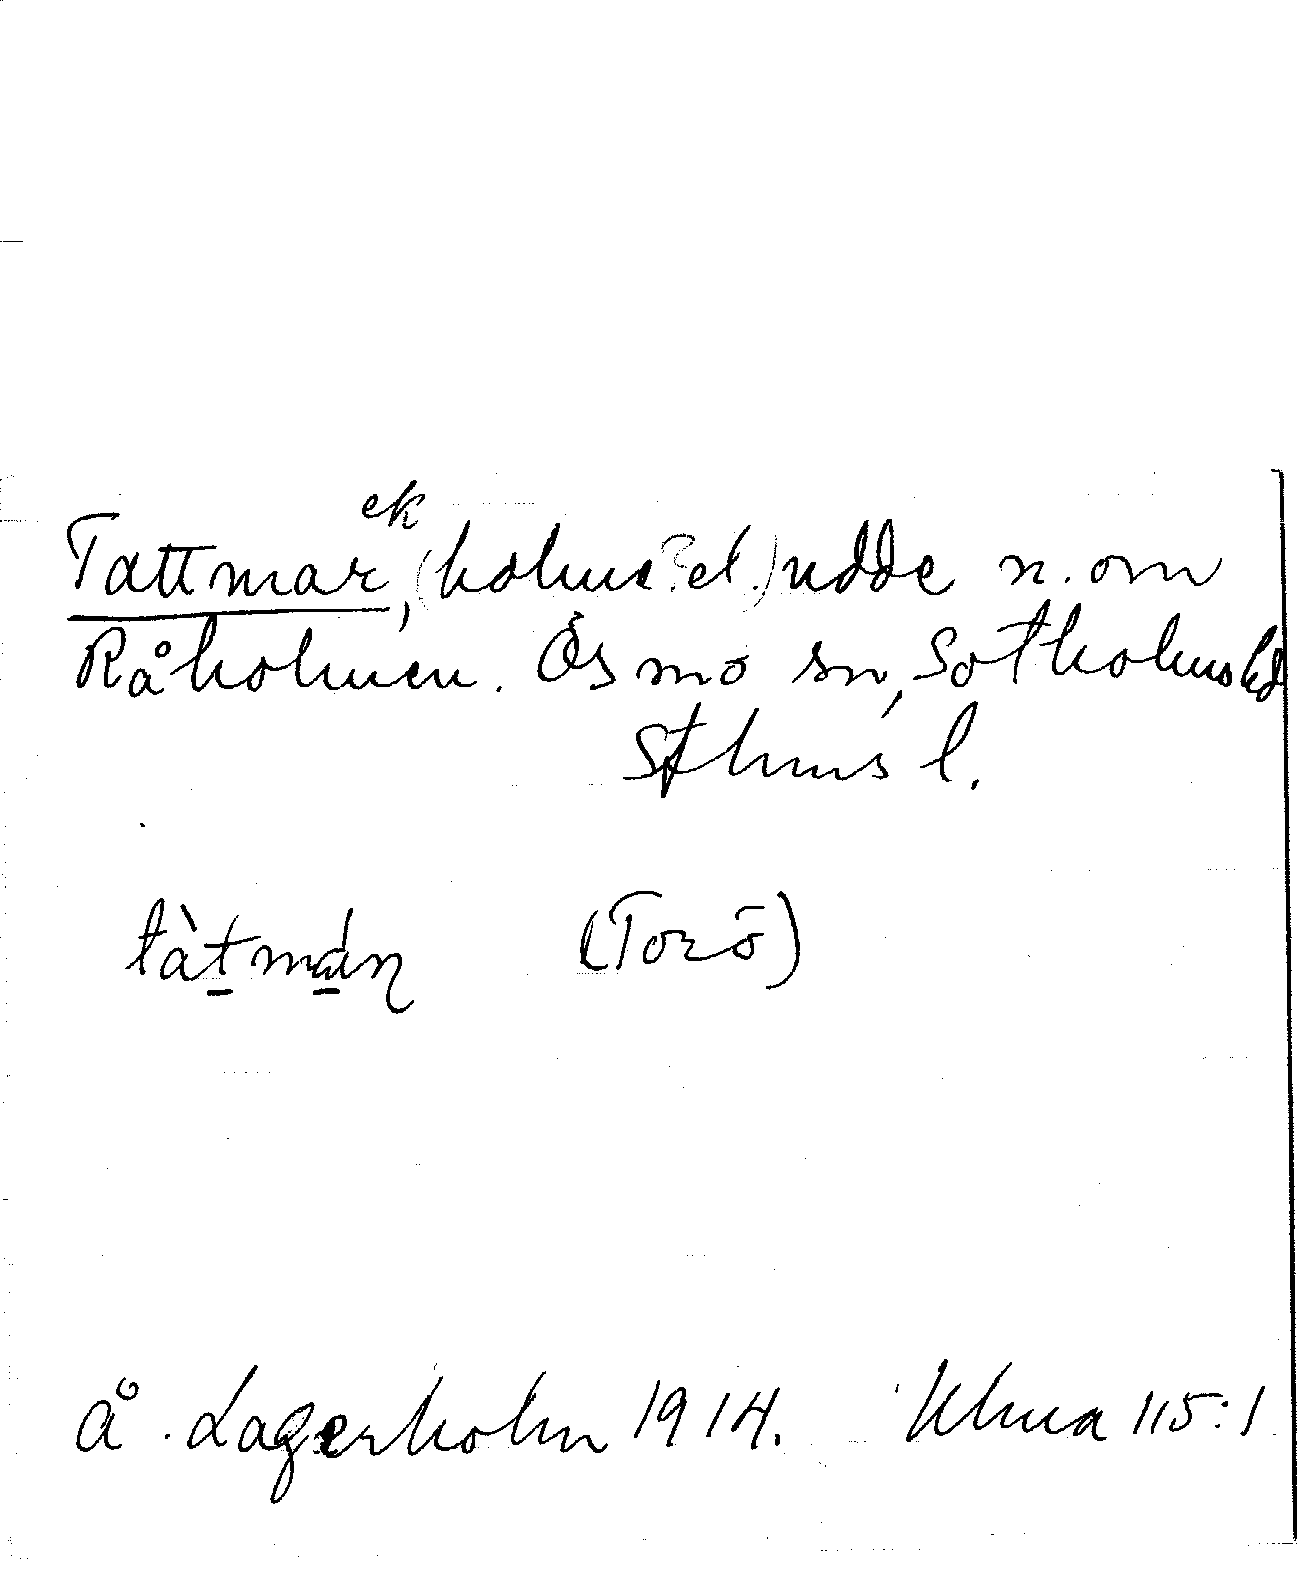 ek
Tattmar, (holme? el.) udde n. om
Råholmen. Ösmo sn, Sotholms hd
Sthms l.
tàtmáɳ (Torö)
Å. Lagerholm 1914. Uhma 115:1